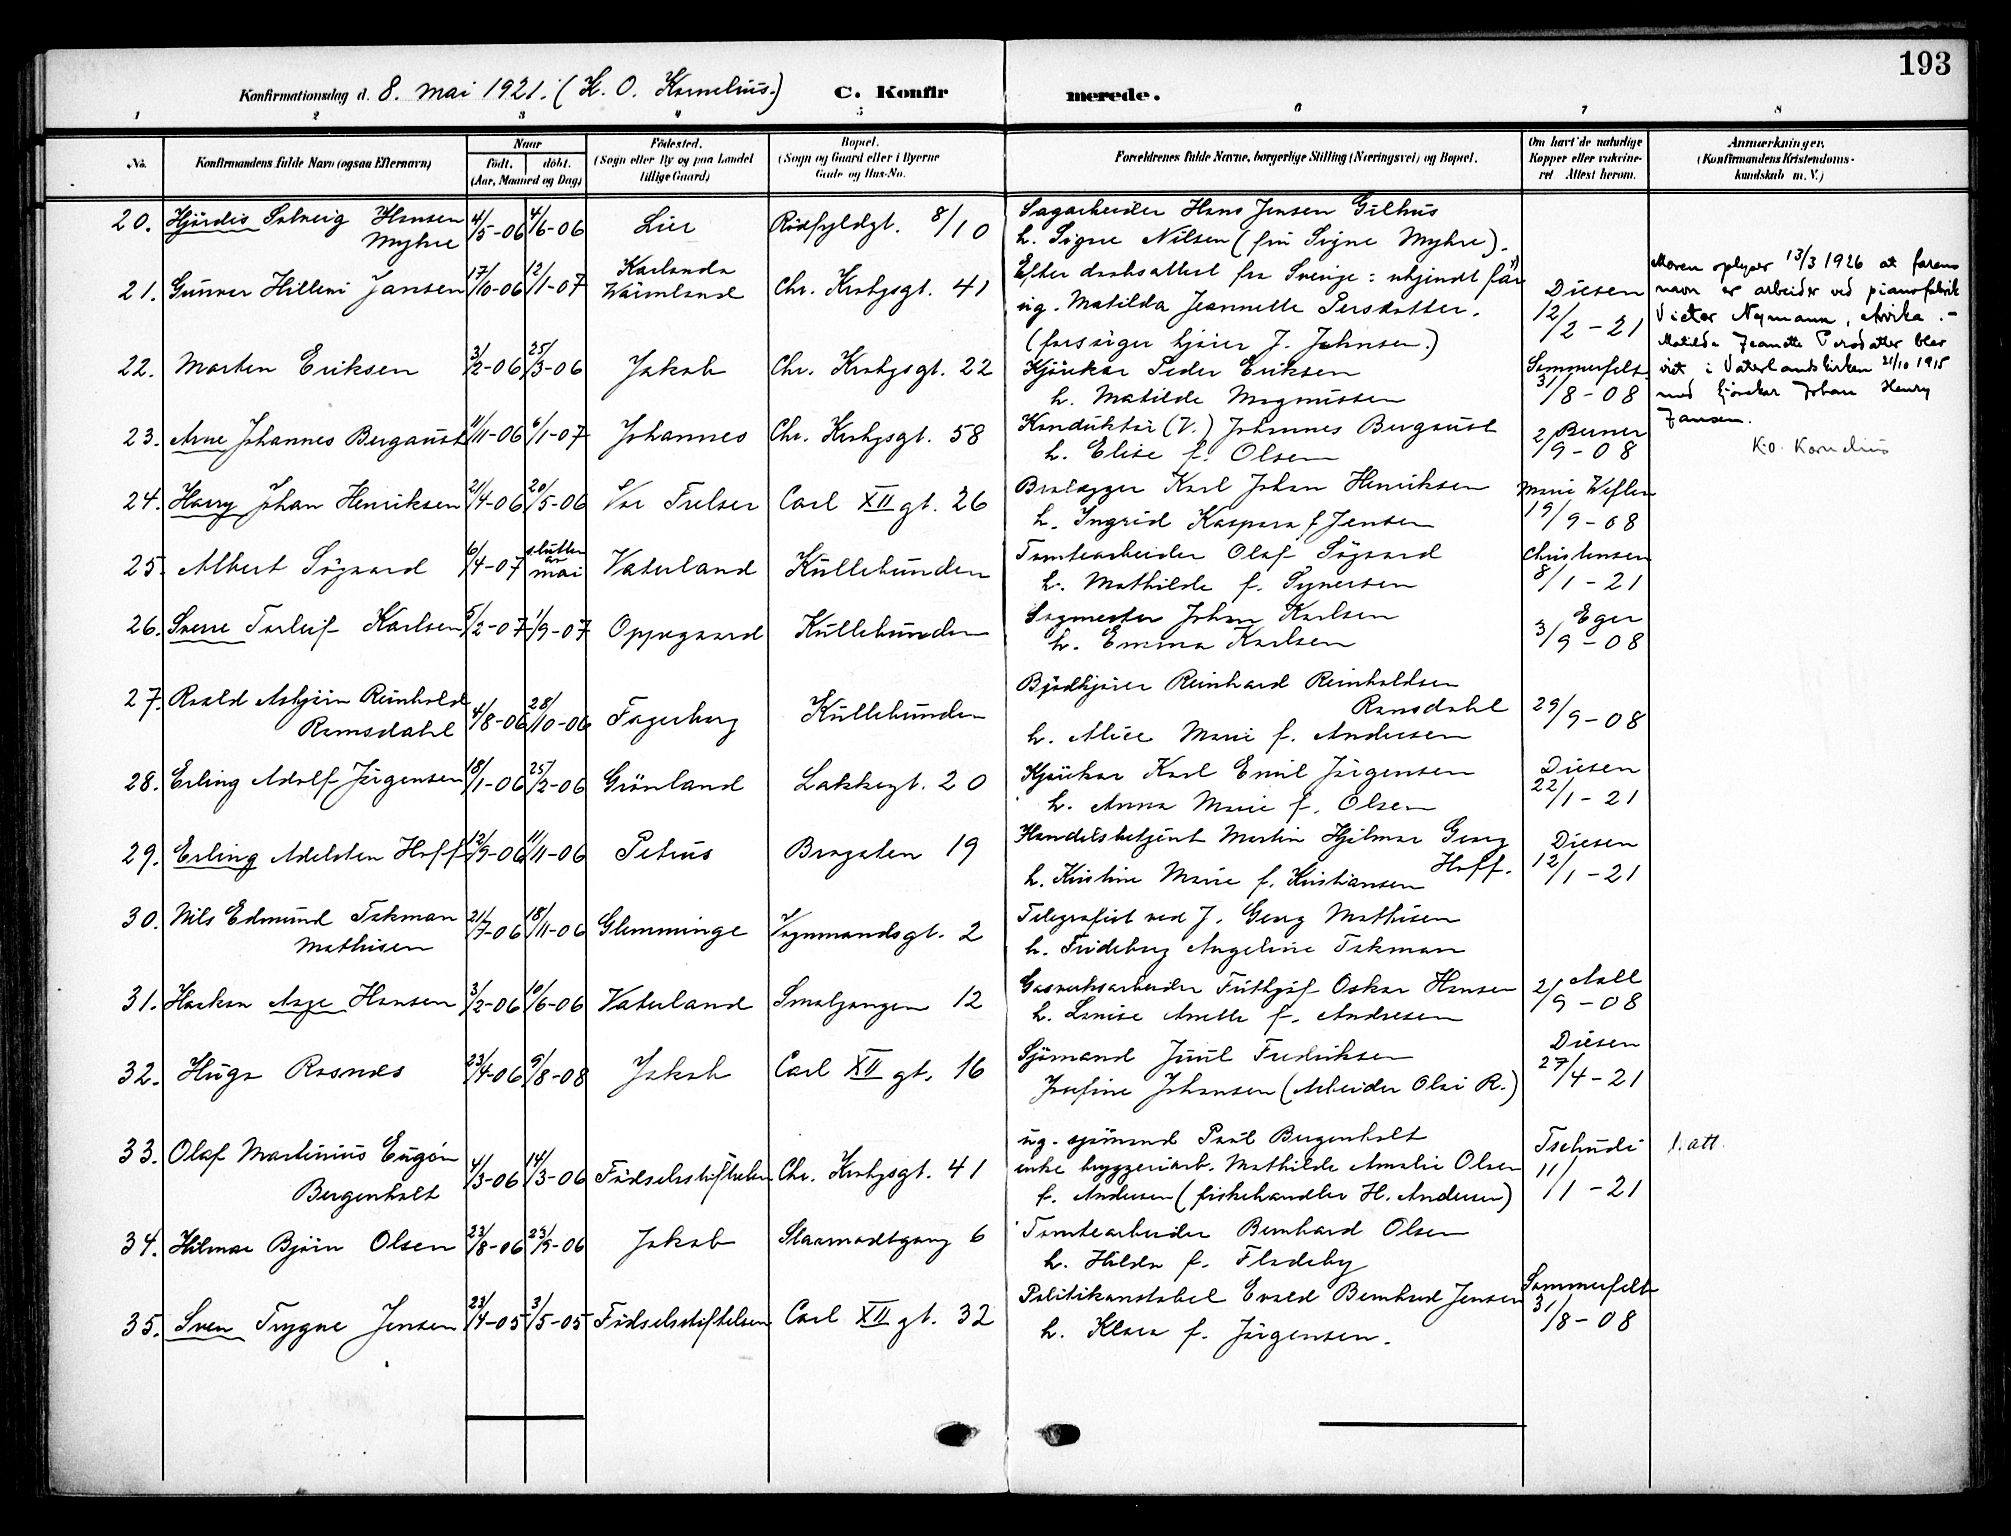 193
Konfirmationsdag d. 8. mai 1921. (K. O. Kornelius.) C. Konfirmerede.
1 2 3 4 5 6 7 8
No. Konfirmandens fulde Navn (ogsaa Efternavn) Naar født. døbt. (Aar, Maaned og Dag) Fødested. (Sogn eller By og paa Landet tillige Gaard) Bopæl. (Sogn og Gaard eller i Byerne Gade og Hus-No. Forældrenes fulde Navne, borgerlige Stilling (Næringsvei) og Bopæl. Om havt de naturlige Kopper eller vakcineret Attest herom. Anmærkninger. (Konfirmandens Kristendomskundskab m. V.)
20. Hjørdis Solveig Hansen Myhre 4/5-06 4/6-06 Lier Rødfyldgt. 8/10 Sagarbeider Hans Jensen Gilhus
h. Signe Nilsen (frü Signe Myhre).
21. Gunnar Hilleri Jansen 17/10-06 12/1-07 Karlanda Wärmland Chr. Krohgsgt. 41 Efter daabsattest fra Sverige: ukjendt far
ug. Matilda Jeannette Persdotter.
(forsørger kjører J. Johnsen.) Diesen 12/2-21
Moren oplyser 13/3 1926 at farens
navn er arbeider ved pianofabrik
Victor Nymann, Arvika.-
Matilda Jeanette Persdatter blev
viet i Vaterlandskirken 21/10 1915
med kjørekar Johan Henry
Jansen.
K.O. Kornelius
22. Morten Eriksen 3/2-06 25/3-06 Jakob Chr. Krohgsgt. 22 Kjørekar Peder Eriksen
h. Matilde Magnussen Sommerfelt 31/8-08
23. Arne Johannes Bergaust 11/11-06 6/1-07 Johannes Chr. Krohgsgt. 58 Konduktør (V.) Johannes Bergaust
h. Elise f. Olsen Berner 2/9-08
24. Harry Johan Henriksen 21/4-06 20/5-06 Vor Frelser Carl XII gt. 26 Brolægger Karl Johan Henriksen
h. Ingrid Kaspara f. Jensen Marie Weflen 19/9-08
25. Albert Søgaard 6/4-07 slutten av mai Vaterland Kullebunden Tomtearbeider Olaf Søgaard
h. Mathilde f. Synersen Christensen 8/1-21
26. Sverre Torleif Karlsen 5/2-07 1/9-07 Oppegaard Kullebunden Sagmester Johan Karlsen
h. Emma Karlsen Eger 3/9-08
27. Roald Asbjørn Reinholdt Ramsdahl 4/8-06 28/10-06 Fagerborg Kullebunden Brødkjører Reinhard Reinholdsen
Ramsdahl
h. Alice Marie f. Andersen 29/9-08
28. Erling Adolf Jørgensen 18/1-06 25/2-06 Grønland Lakkegt. 20 Kjørekar Karl Emil Jørgensen
h. Anna Marie f. Olsen Diesen 22/1-21
29. Erling Adelsten Hoff 12/9-06 11/11-06 Petrus Brogaten 19 Handelsbetjent Martin Hjalmar Georg
Hoff.
h. Kristine Marie f. Kristiansen Diesen 12/1-21
30. Nils Edmund Takman Mathisen 21/7-06 18/11-06 Glemminge Vognmandsgt. 2 Telegrafist ved J. Georg Mathisen
h. Frideborg Angeline Takman
31. Haakon Aage Hansen 3/2-06 10/6-06 Vaterland Smalgangen 12 Gasverksarbeider Fritjof Oskar Hansen
h. Louise Anette f. Andresen Aall 2/9-08
32. Hugo Rosnæs 23/4-06 9/8-08 Jakob Carl XII gt. 16 Sjømand Juul Fredriksen
Josefine Johansen (Arbeider Olai R.) Diesen 27/4-21
33. Olaf Martinius Eugén Bergenholt 4/3-06 14/3-06 Fødselsstiftelsen Chr. Krohgsgt. 41 ug. sjømand Paul Bergenholt
enke bryggeriarb. Mathilde Amalie Olsen
f. Andersen (fiskehandler H. Andersen) Tschudi 11/1-21 1. att.
34. Hilmar Bjørn Olsen 23/8-06 23/9-06 Jakob Staarmodtgang 6 Tomtearbeider Bernhard Olsen
h. Hilda f. Fladeby
35. Sven Trygve Jensen 23/4-05 3/5-05 Fødselsstiftelsen Carl XII gt. 32 Politikonstabel Evald Bernhard Jensen
h. Klara f. Jørgensen. Sommerfelt 31/8-08